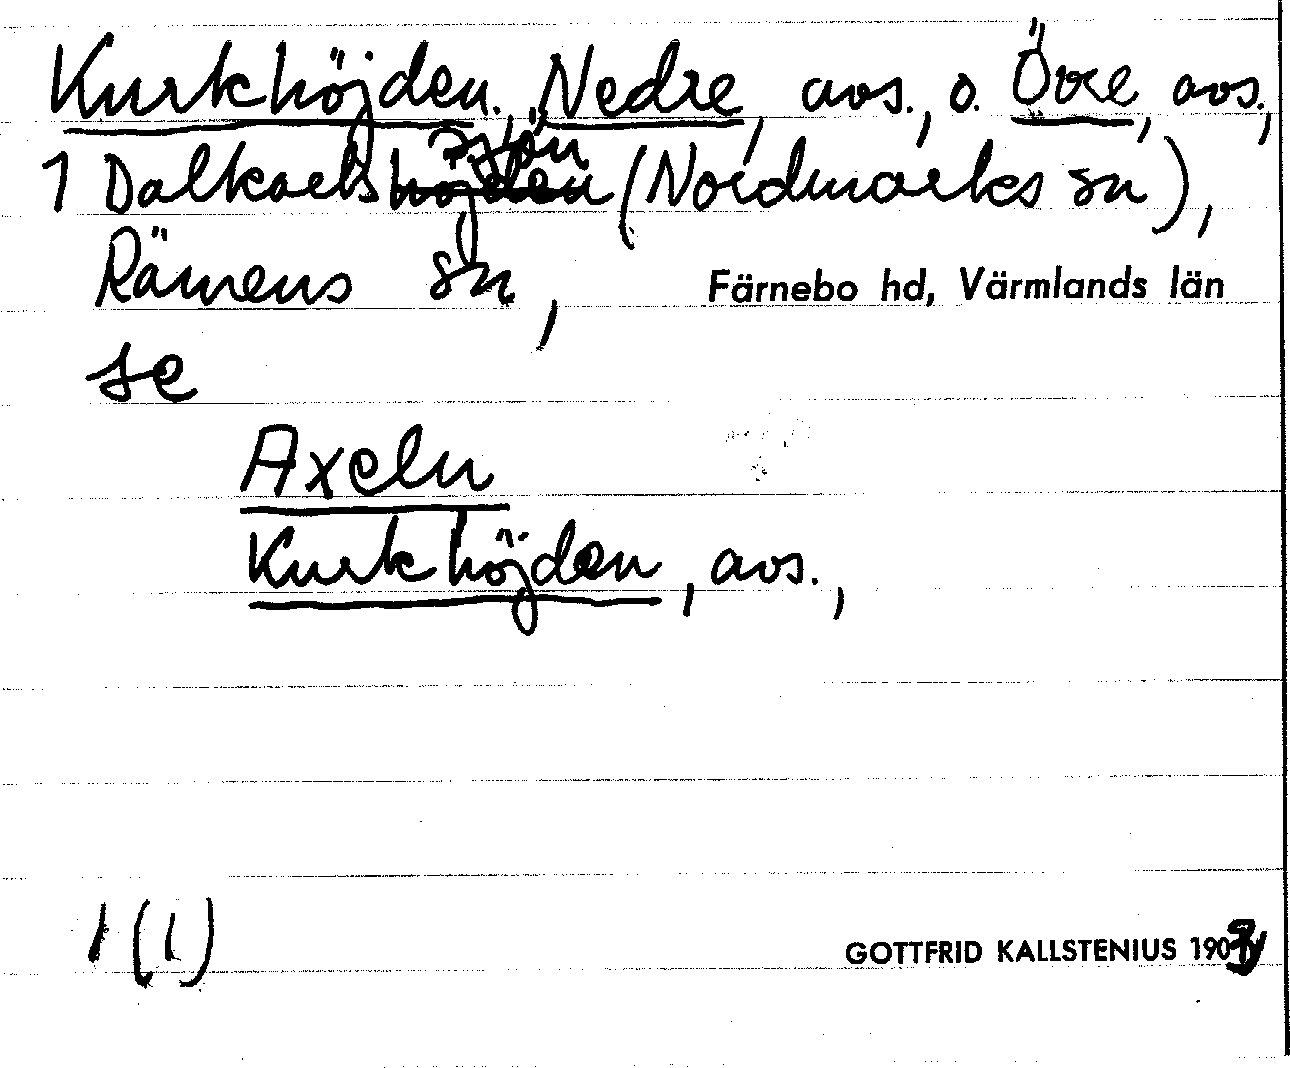 Kurkhöjden, Nedre, avs., o. Övre, avs.,
1 Dalkarlssjön (Nordmarks sn),
Rämens sn, Färnebo hd, Värmlands län
se
Axeln
Kurkhöjden, avs.,
1 (1)
GOTTFRID KALLSTENIUS 190